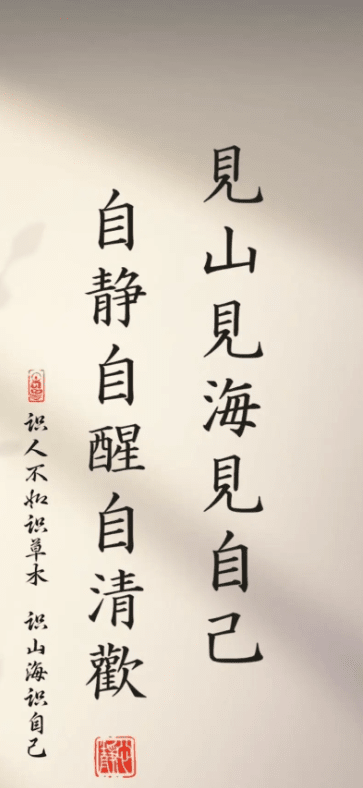 見山見海見自己
自静自醒自清歡
识人不如识草木 识山海识自己